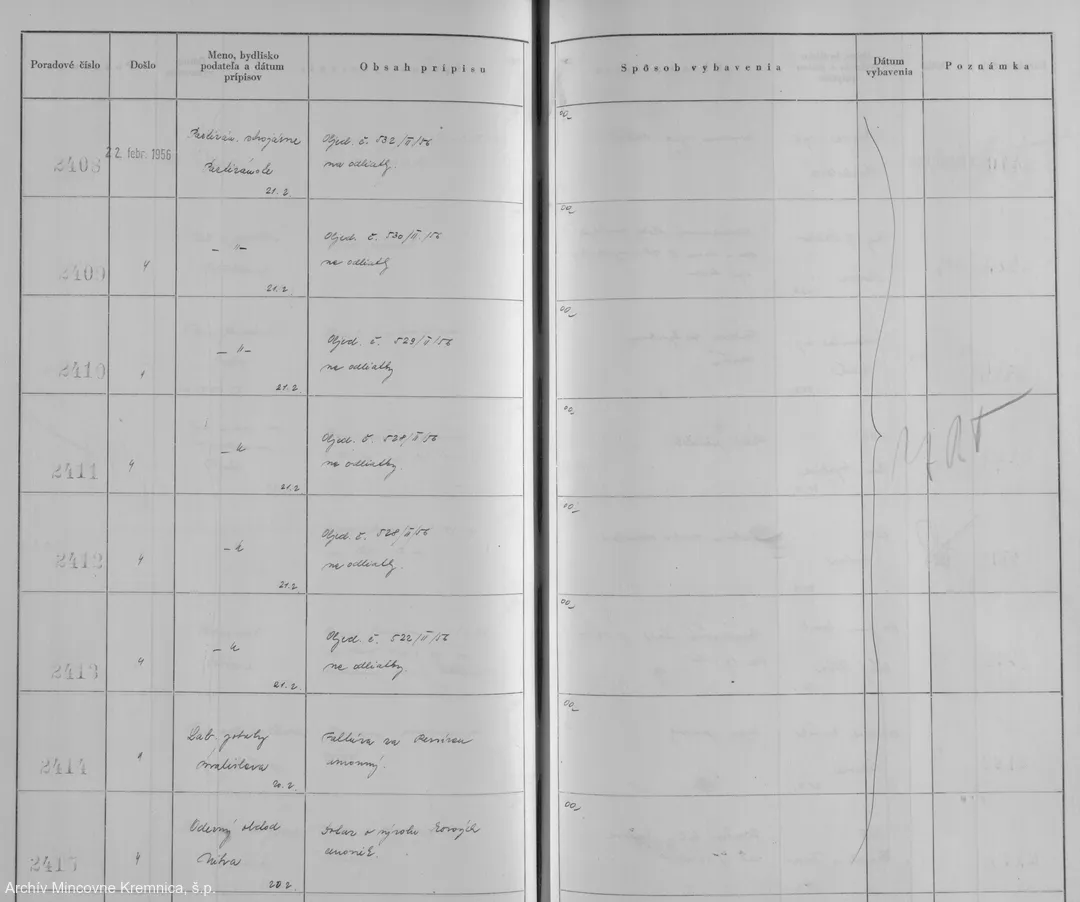 Poradové číslo
Došlo
Meno, bydlisko
podateľa a dátum
prípisov
Obsah prípisu
Spôsob vybavenia
Dátum
vybavenia
Poznámka
2408
22. febr. 1956
strojárne
21.2.
Objed. č. 532/II/56
na odliatky.
00,
2409
"
— " —
21.2.
Objed. č. 530/II/56
na odliatky
00,
2410
"
— " —
21.2.
Objed. č. 529/II/56
na odliatky
00,
2411
"
— "
21.2.
Objed. č.
na odliatky.
00,
2412
"
— "
21.2.
Objed. č. 528/II/56
na odliatky.
00,
2413
"
— "
21.2.
Objed. č. 522/II/56
na odliatky.
00,
2414
"
Lab. potreby
Bratislava
20.2.
Faktúra za
00,
"
Odevný obchod
Nitra
20.2.
Dotaz o výrobu kovových
00,
Archív Mincovne Kremnica, š.p.